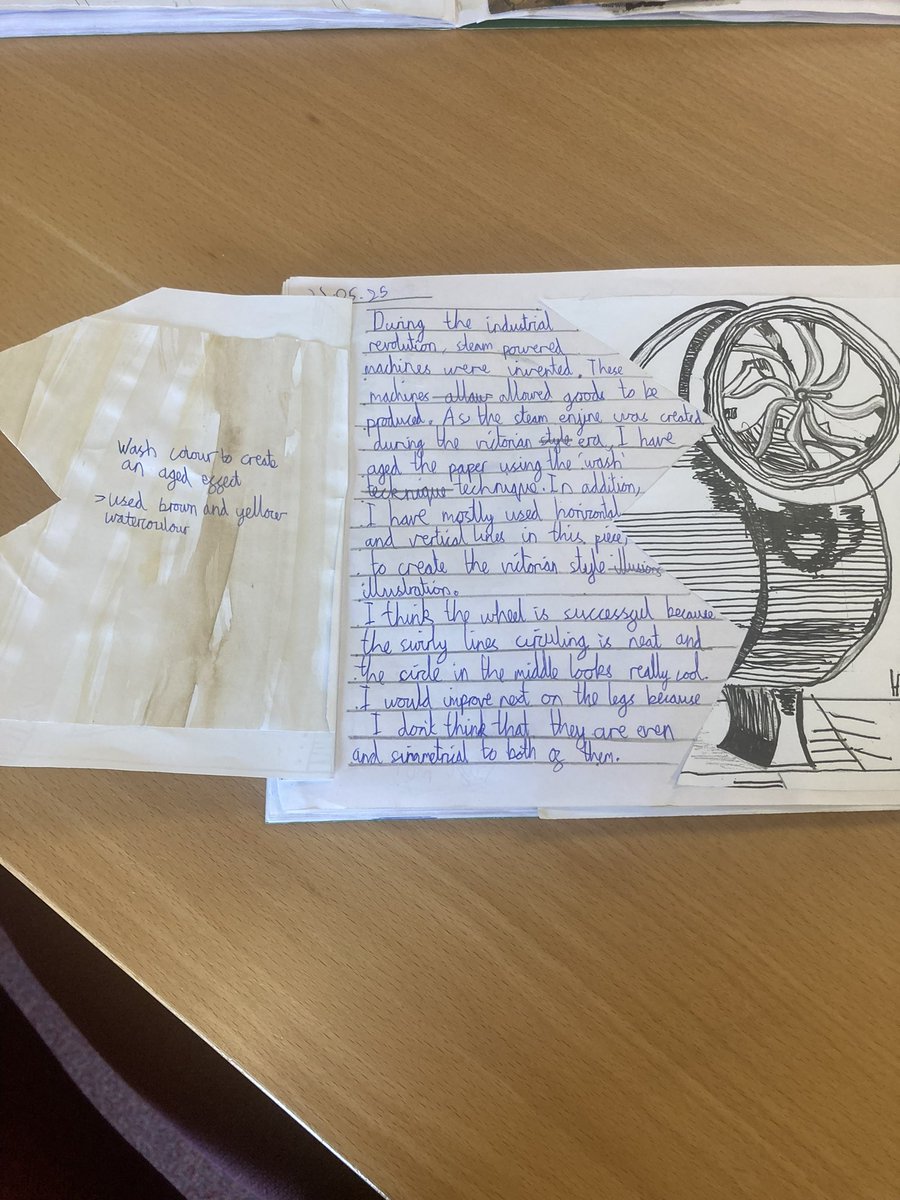 Wash colour to create
an aged effect
> used brown and yellow
watercoulour
.05.25
During the industrial
revolution, steam powered
machines were invented. These
machines allow allowed goods to be
produced. As the steam engine was created
during the victorian style era, I have
aged the paper using the 'wash'
tecknique technique. In addition,
I have mostly used horizontal
and vertical lines in this piece,
to create the victorian style illusions
illustration.
I think the wheel is successful because
the swirly lines circuling is neat and
the circle in the middle looks really cool.
I would improve next on the legs because
I dont think that they are even
and simmetrial to both of them.